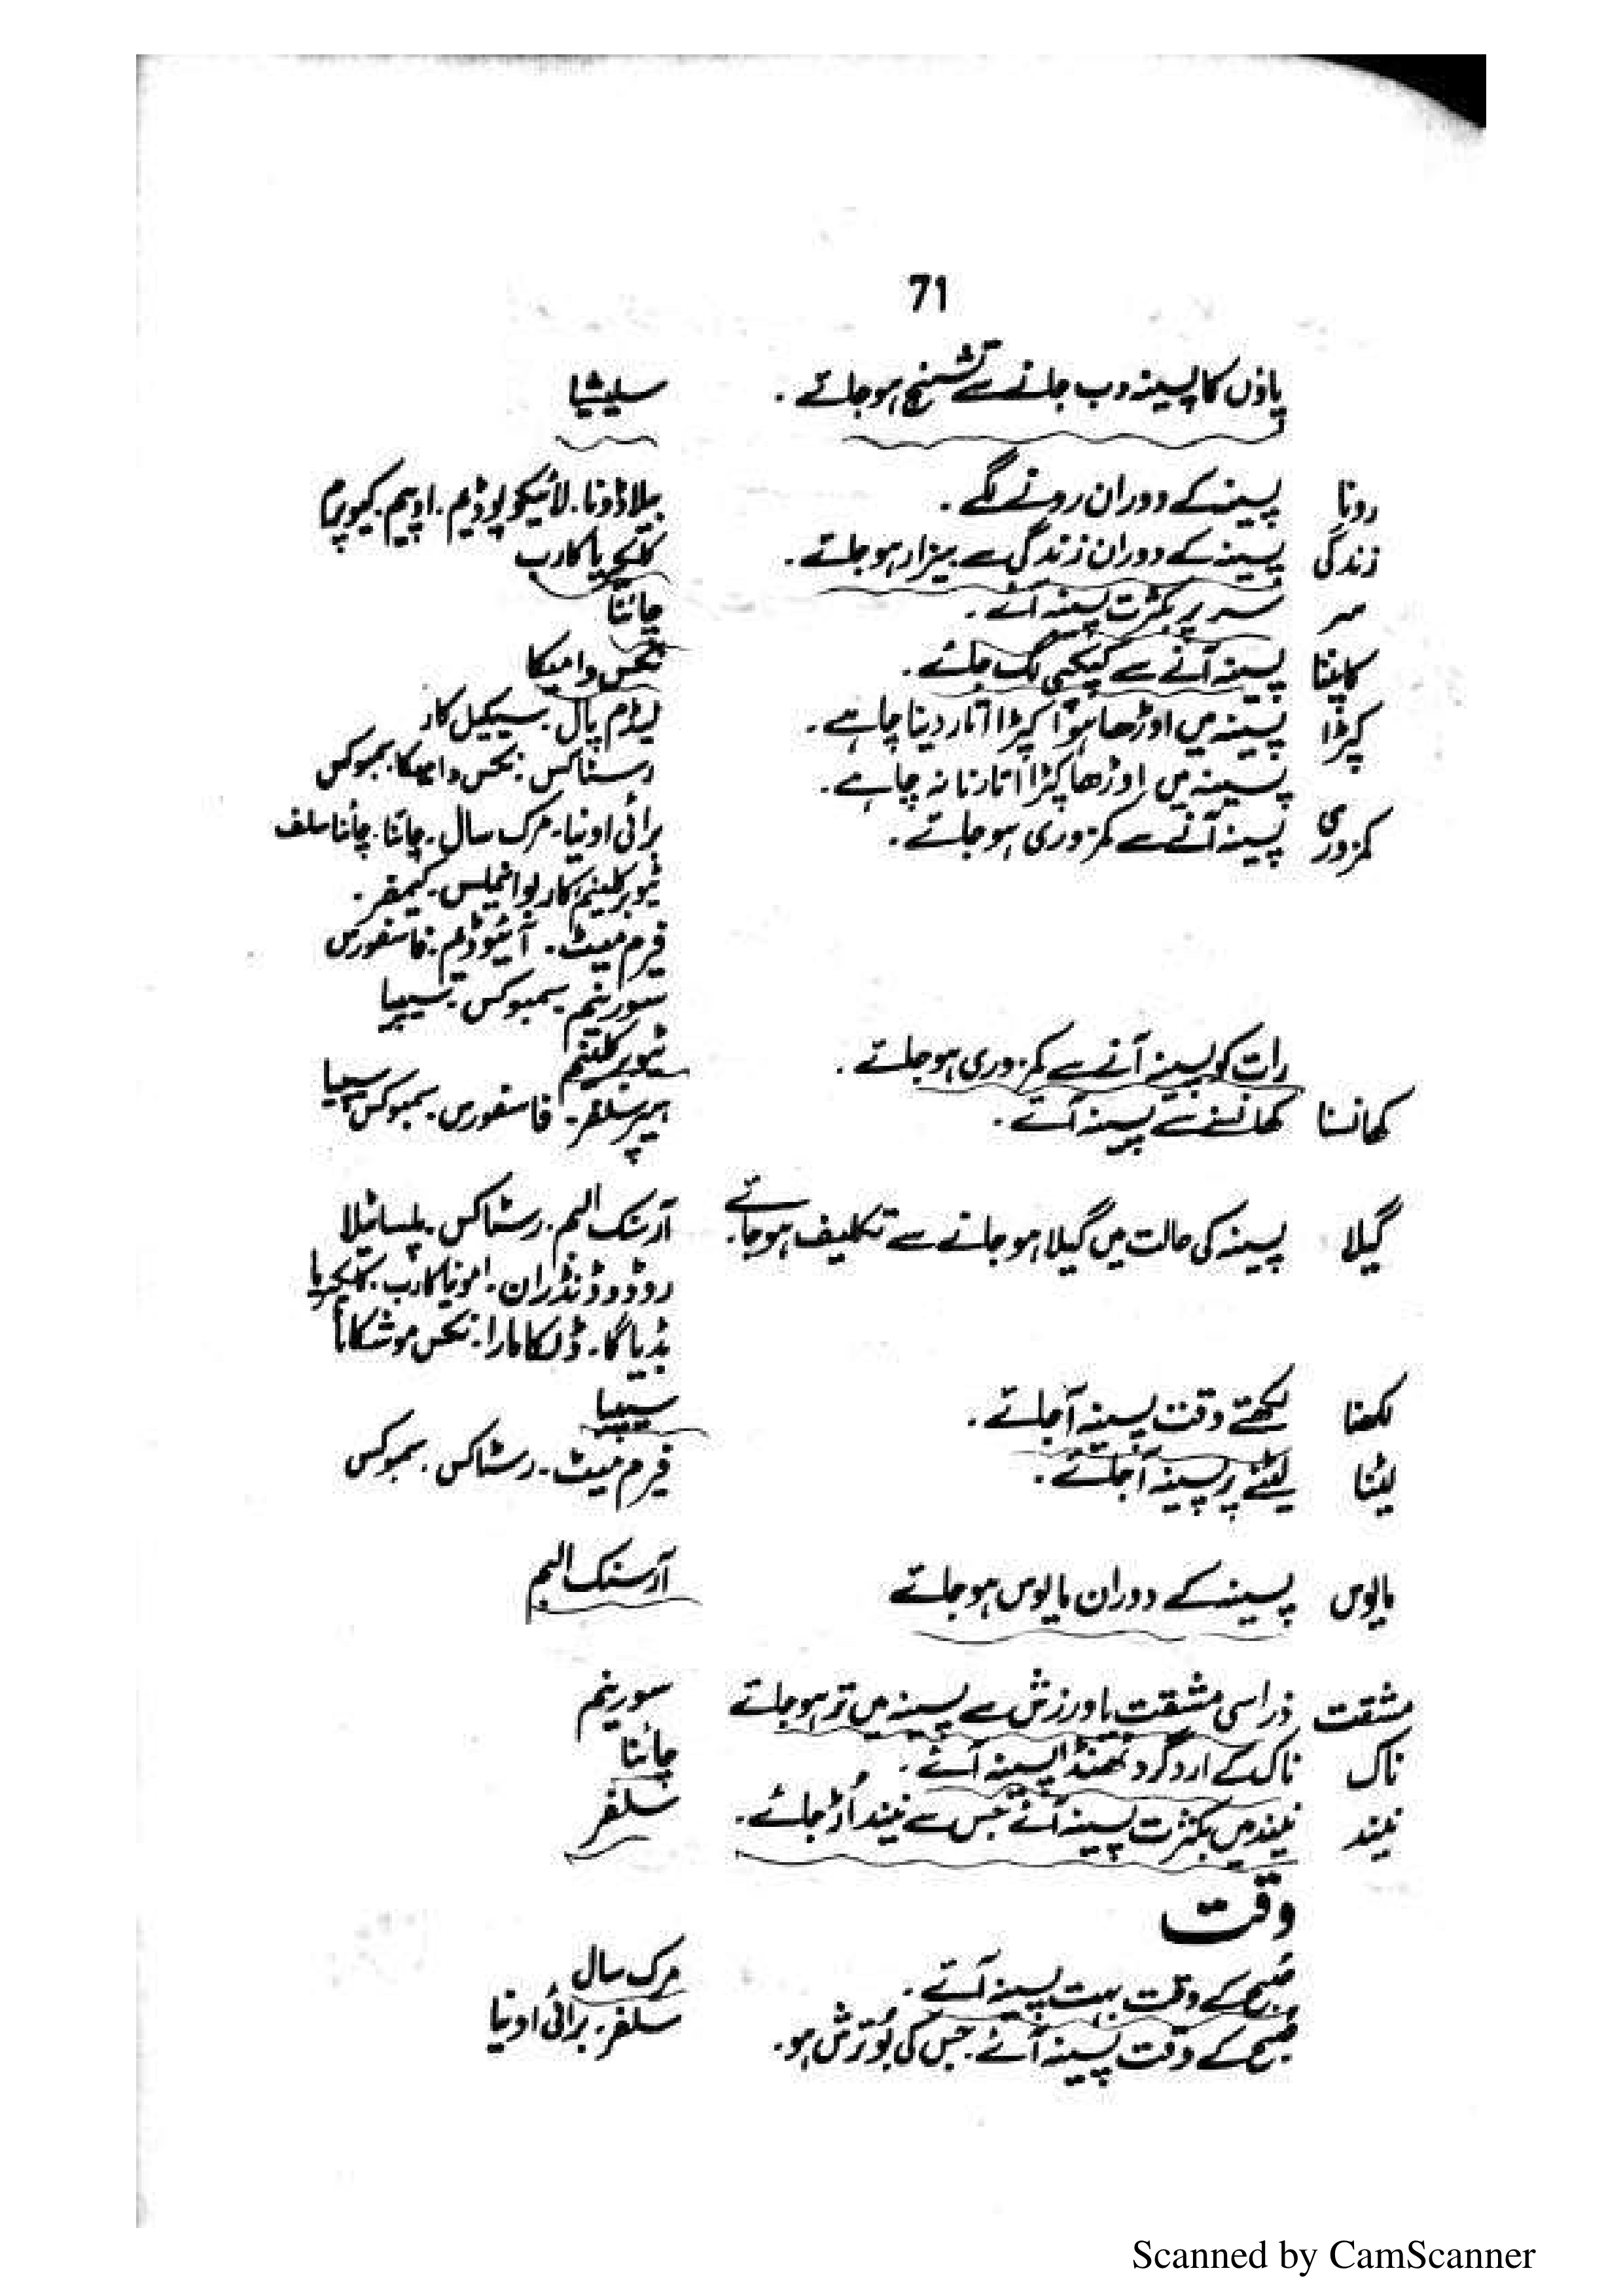 71
پاؤں کا پسینہ دب جانے سے تشنج ہو جائے ۔ سلیشیا
رونا پسینہ کے دوران رونے لگے ۔ بیلاڈونا ۔ لائیکوپوڈیم ۔ اوپیم ۔ کیوپرم
زندگی پسینہ کے دوران زندگی سے بیزار ہو جائے ۔ کلکیریا کارب
سر سر پر بکثرت پسینہ آئے ۔ چائنا
کانپنا پسینہ آنے سے کپکپی لگ جائے ۔ نکس وامیکا
کپڑا پسینہ میں اوڑھا ہوا کپڑا اتار دینا چاہے ۔ لیڈم پال ۔ سیکیل کار
پسینہ میں اوڑھا کپڑا اتارنا نہ چاہے ۔ رسٹاکس ۔ نکس وامیکا ۔ سمبوکس
کمزوری پسینہ آنے سے کمزوری ہو جائے ۔ برائی اونیا ۔ مرک سال ۔ چائنا ۔ چائنا سلف
ٹیوبرکلینم ۔ کاربو انیملس ۔ کیمفر ۔
فیرم میٹ ۔ آئیوڈیم ۔ فاسفورس
سورینم ۔ سمبوکس ۔ سیپیا
رات کو پسینہ آنے سے کمزوری ہو جائے ۔ ٹیوبرکلینم
کھانسنا کھانسنے سے پسینہ آئے ۔ ہیپر سلفر ۔ فاسفورس ۔ سمبوکس سیپیا
گیلا پسینہ کی حالت میں گیلا ہو جانے سے تکلیف ہو جائے ۔ آرسنک البم ۔ رسٹاکس ۔ پلسا ٹیلا
روڈوڈنڈران ۔ امونیا کارب ۔ کلکیریا
بڈیاگا ۔ ڈلکامارا ۔ نکس موشکاٹا
لکھنا لکھتے وقت پسینہ آ جائے ۔ سیپیا
لیٹنا لیٹنے پر پسینہ آ جائے ۔ فیرم میٹ ۔ رسٹاکس ۔ سمبوکس
مایوس پسینہ کے دوران مایوس ہو جائے آرسنک البم
مشقت ذرا سی مشقت یا ورزش سے پسینہ میں تر ہو جائے سورینم
ناک ناک کے ارد گرد ٹھنڈا پسینہ آئے ۔ چائنا
نیند نیند میں بکثرت پسینہ آئے جس سے نیند اُڑ جائے ۔ سلفر
وقت
صبح کے وقت بہت پسینہ آئے ۔ مرک سال
صبح کے وقت پسینہ آئے ۔ جس کی بُو تُرش ہو ۔ سلفر ۔ برائی اونیا
Scanned by CamScanner